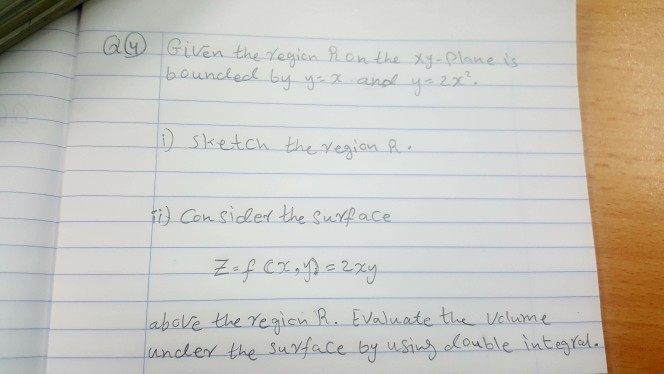 Q4 Given the region R on the xy-plane is
bounded by y=x and y=2x².
i) sketch the region R.
ii) Consider the surface
Z=f(x,y)=2xy
above the region R. Evaluate the volume
under the surface by using double integral.